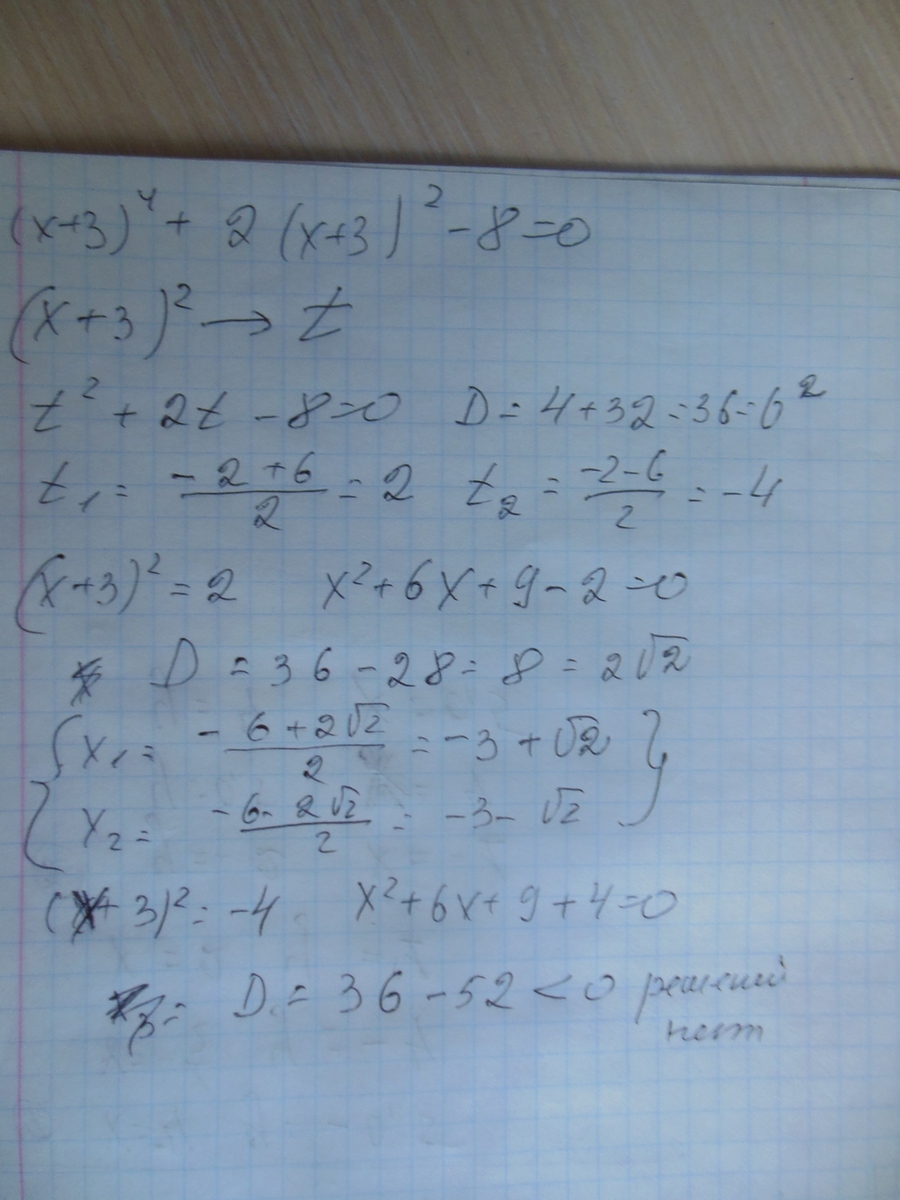 (x+3)⁴ + 2(x+3)² - 8 = 0
(x+3)² → t
t² + 2t - 8 = 0 D = 4 + 32 = 36 = 6²
t₁ = (-2+6)/2 = 2 t₂ = (-2-6)/2 = -4
(x+3)² = 2 x² + 6x + 9 - 2 = 0
D = 36 - 28 = 8 = 2√2
{ x₁ = (-6+2√2)/2 = -3 + √2 }
{ x₂ = (-6-2√2)/2 = -3 - √2 }
(x+3)² = -4 x² + 6x + 9 + 4 = 0
D = 36 - 52 < 0 решений
нет